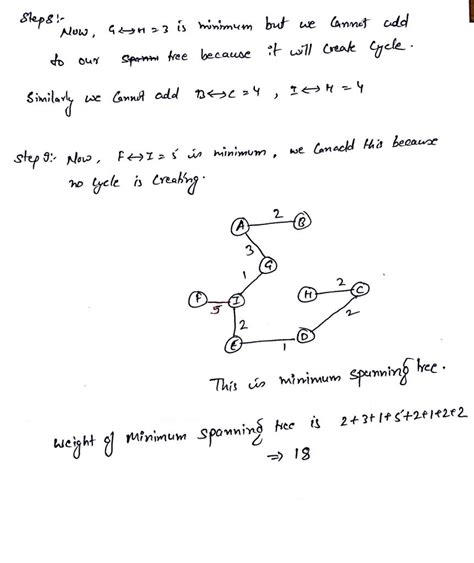 Step 8:-
Now, G↔H = 3 is minimum but we cannot add
to our tree because it will create cycle.
Similarly we cannot add B↔C = 4, I↔H = 4
Step 9:- Now, F↔I = 5 is minimum, we can add this because
no cycle is creating.
A 2 B
3
G
1
F 5 I
H 2 C
2
2
E 1 D
This is minimum spanning tree.
Weight of minimum spanning tree is 2+3+1+5+2+1+2+2
⇒ 18